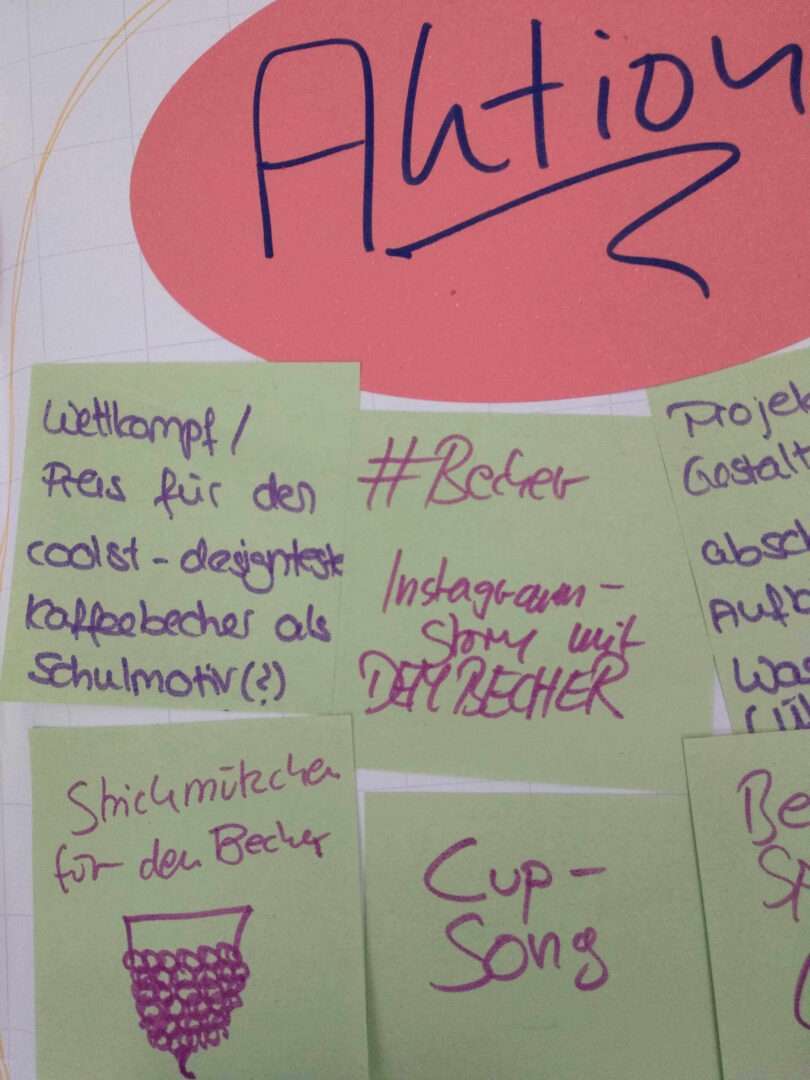 Aktion
Wettkampf /
Preis für den
coolst-designteste
Kaffeebecher als
Schulmotiv(?)
#Becher
Instagram-
Story mit
DEM BECHER
Projek
Gestalt
absch
Aufb
Was
(Ü
Strickmützchen
für den Becher
Cup-
Song
Be